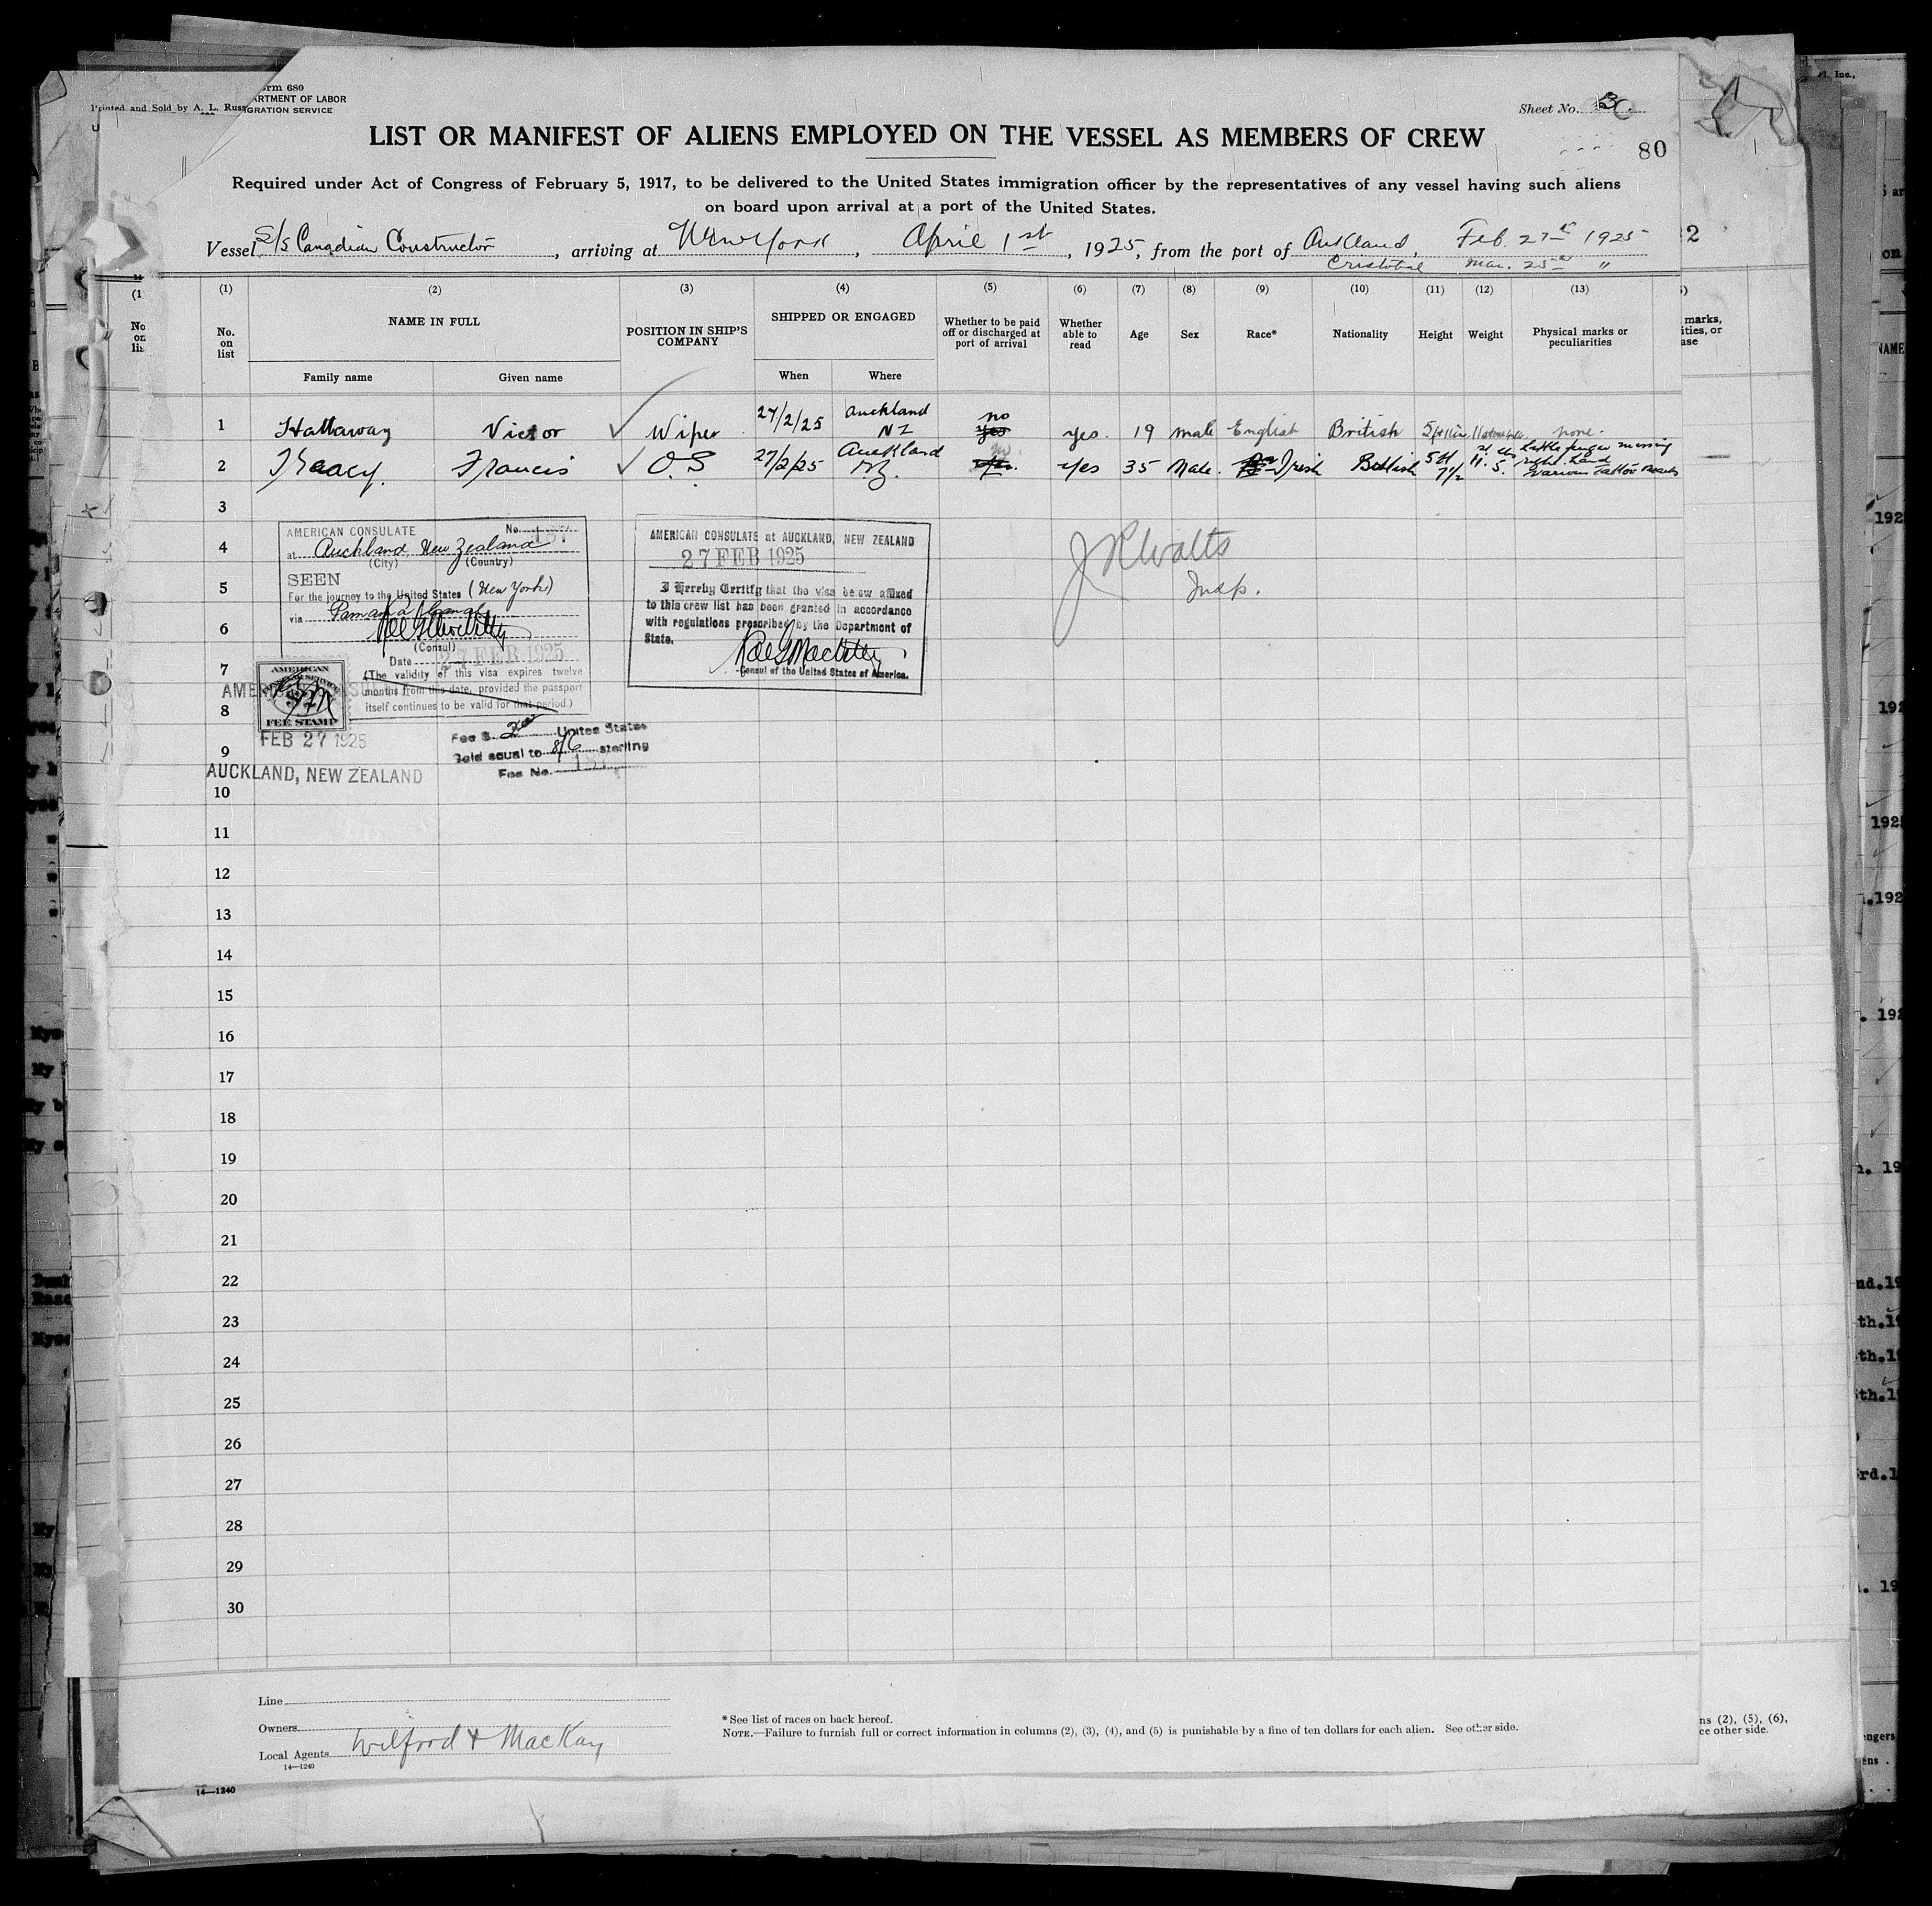 orm 680
ARTMENT OF LABOR
Printed and Sold by A. L. Russ
IGRATION SERVICE
Sheet No.
LIST OR MANIFEST OF ALIENS EMPLOYED ON THE VESSEL AS MEMBERS OF CREW
80
Required under Act of Congress of February 5, 1917, to be delivered to the United States immigration officer by the representatives of any vessel having such aliens
on board upon arrival at a port of the United States.
Vessel S/S Canadian Constructor, arriving at New York, April 1st, 1925, from the port of Aukland, Feb. 27th 1925
Cristobal Mar. 25th "
2
(1) (2) (3) (4) (5) (6) (7) (8) (9) (10) (11) (12) (13)
No. on list
NAME IN FULL
Family name Given name
POSITION IN SHIP'S COMPANY
SHIPPED OR ENGAGED
When Where
Whether to be paid off or discharged at port of arrival
Whether able to read
Age Sex Race* Nationality Height Weight
Physical marks or peculiarities
1 Hallaway Victor Wiper 27/2/25 Auckland NZ no yes yes. 19 male English British 5 ft 11 in none.
2 Tracey. Francis O.S 27/2/25 Auckland N.Z. no yes. yes 35 Male. Irish British 5 ft 7 1/2 11. 5. Little finger missing right hand Various Tattoo Marks
3
4
5
6
7
8
9
10
11
12
13
14
15
16
17
18
19
20
21
22
23
24
25
26
27
28
29
30
AMERICAN CONSULATE No. 187
at Auckland, New Zealand
(City) (Country)
SEEN
For the journey to the United States (New York)
via Panama Canal
(Consul)
Date 27 FEB 1925
(The validity of this visa expires twelve
months from this date, provided the passport
itself continues to be valid for that period.)
AMERICAN
FEE STAMP
FEB 27 1925
AUCKLAND, NEW ZEALAND
Fee $ 2.00 United States
Gold equal to 8/6 sterling
Fee No.
AMERICAN CONSULATE at AUCKLAND, NEW ZEALAND
27 FEB 1925
I Hereby Certify that the visa below affixed
to this crew list has been granted in accordance
with regulations prescribed by the Department of
State.
Consul of the United States of America.
J R Watts
Insp.
Line
Owners
Local Agents Wilford & MacKay
14—1240
* See list of races on back hereof.
NOTE.—Failure to furnish full or correct information in columns (2), (3), (4), and (5) is punishable by a fine of ten dollars for each alien. See other side.
ns (2), (5), (6),
ce other side.
14—1240